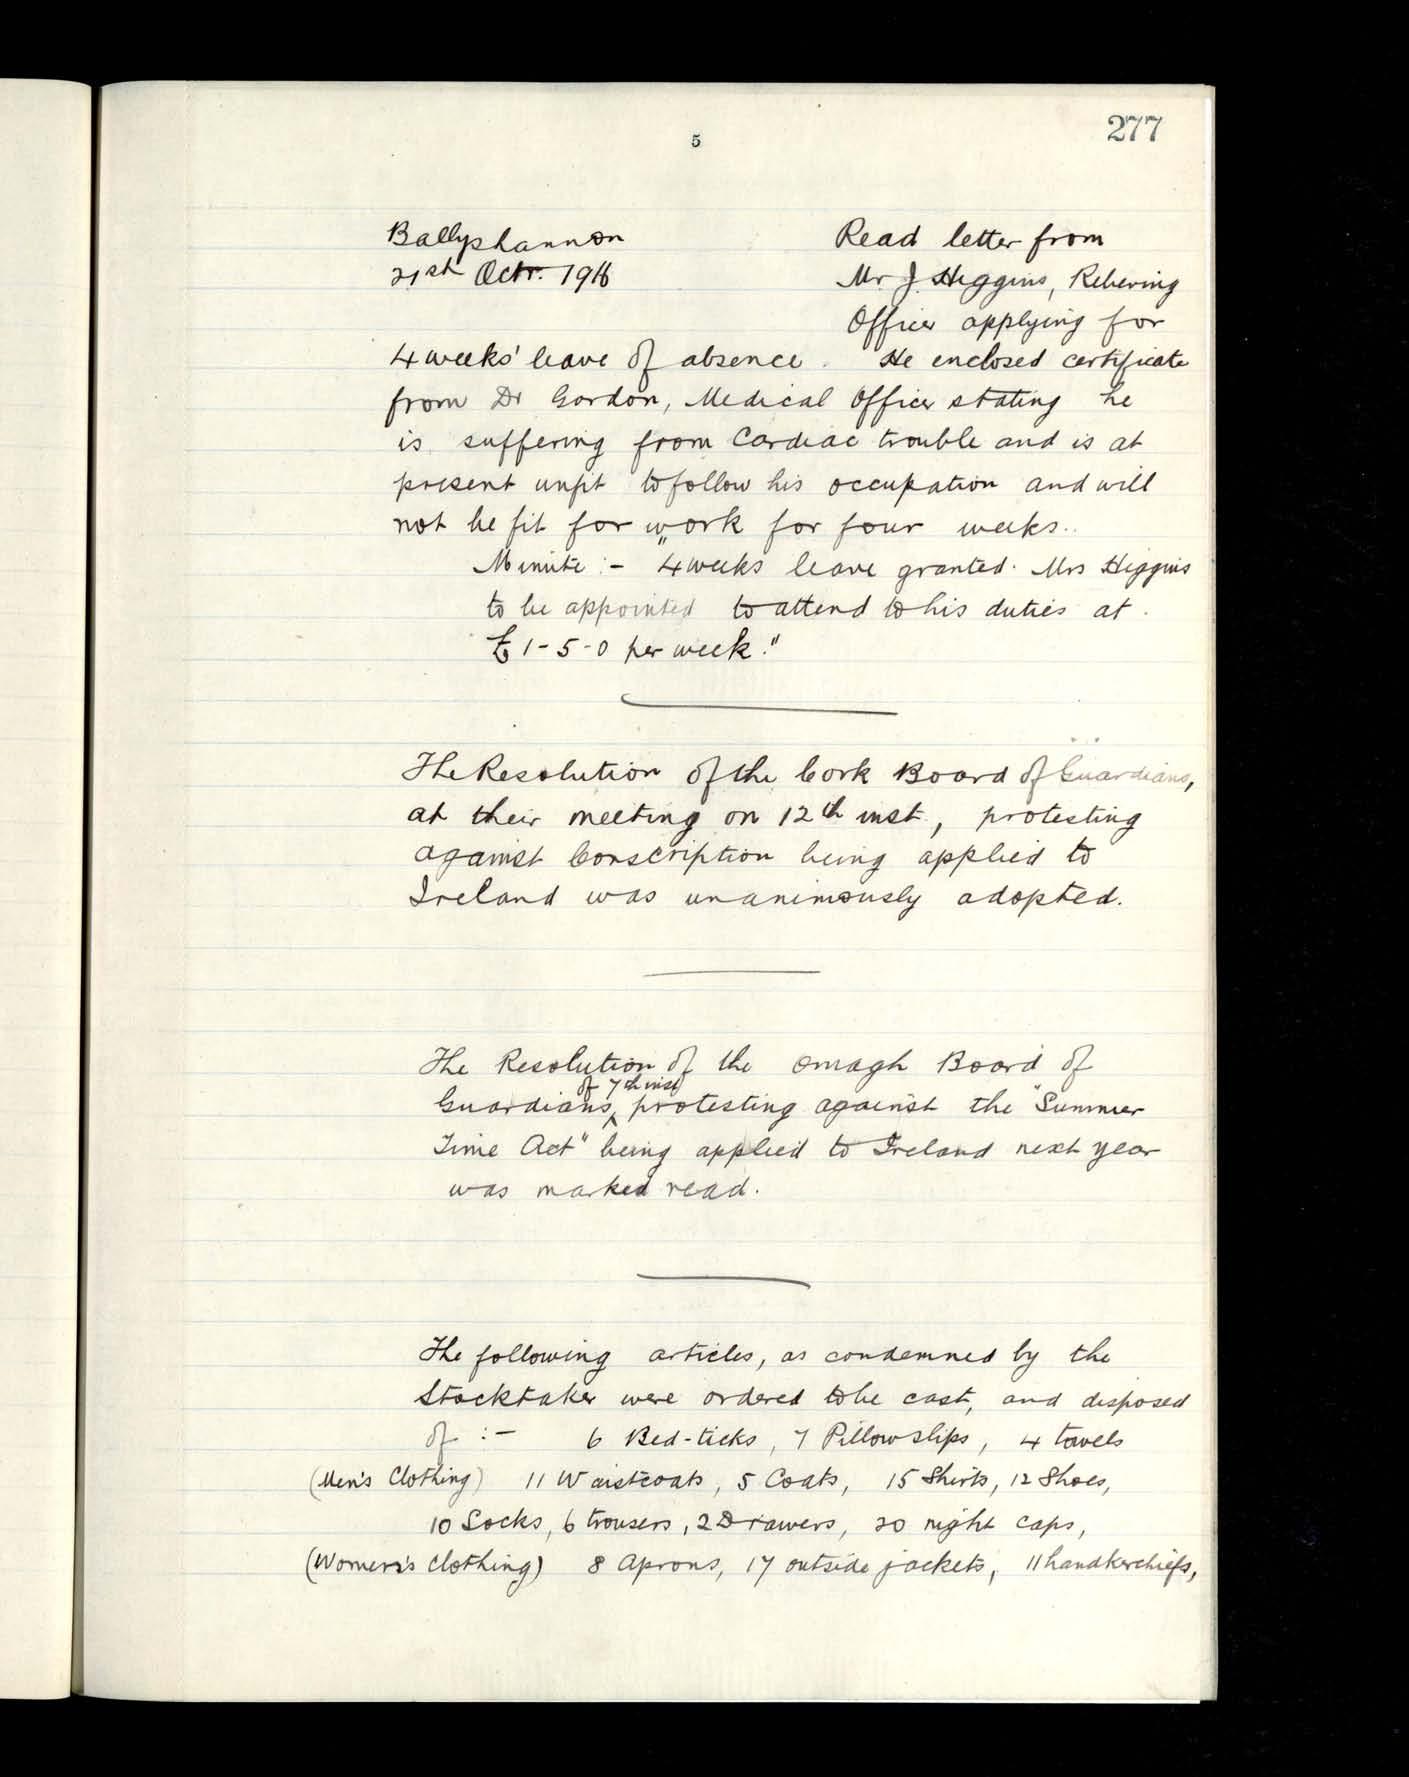 277
5
Ballyshannon
21st Octr. 1916
Read letter from
Mr J Higgins, Relieving
Officer applying for
4 weeks' leave of absence. He enclosed certificate
from Dr Gordon, Medical Officer stating he
is suffering from Cardiac trouble and is at
present unfit to follow his occupation and will
not be fit for work for four weeks.
Minute :- "4 weeks leave granted. Mrs Higgins
to be appointed to attend to his duties at
£1-5-0 per week."
The Resolution of the Cork Board of Guardians,
at their meeting on 12th inst, protesting
against Conscription being applied to
Ireland was unanimously adopted.
The Resolution of the Omagh Board of
of 7th inst
Guardians, protesting against the "Summer
Time Act" being applied to Ireland next year
was marked read.
The following articles, as condemned by the
Stocktaker were ordered to be cast, and disposed
of :- 6 Bed-ticks, 7 Pillowslips, 4 towels
(Men's Clothing) 11 Waistcoats, 5 Coats, 15 Shirts, 12 Shoes,
10 Socks, 6 trousers, 2 Drawers, 20 night caps,
(Women's Clothing) 8 Aprons, 17 outside jackets, 11 handkerchiefs,